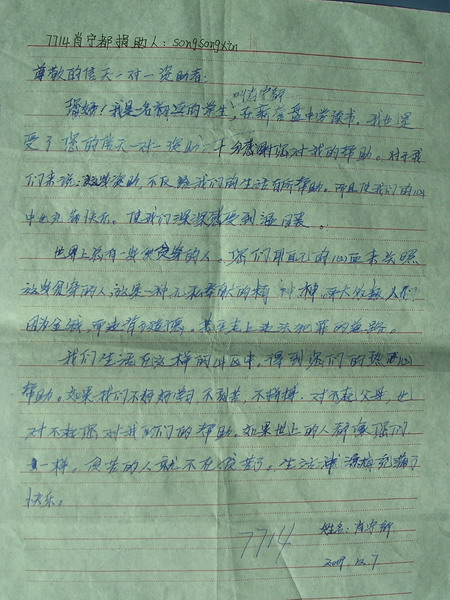 7714肖宁都捐助人：songsongxin
尊敬的信天一对一资助者：
叫肖宁都
您好！我是名初三的学生，在新营盘中学读书，我也是
受了您的信天一对一资助，十分感谢您对我的帮助。对于我
们来说，这些资助不仅给我们的生活有所帮助，而且使我们的心
中也充满快乐。使我们深深感受到温暖。
世界上总有一些贫穷的人，你们用自己的心血来关照
这些贫穷的人，这是一种无私奉献的精神，而大多数人们
因为金钱而出卖了道德，甚至走上违法犯罪的道路。
我们生活在这样的社区中，得到你们的热心
帮助。如果我们不好好学习，不刻苦，不拼搏，对不起父母，也
对不起你对我们的帮助。如果世上的人都像你们
一样，贫苦的人就不在贫苦了。生活充满了
快乐。
7714 姓名：肖宁都
2009.12.7